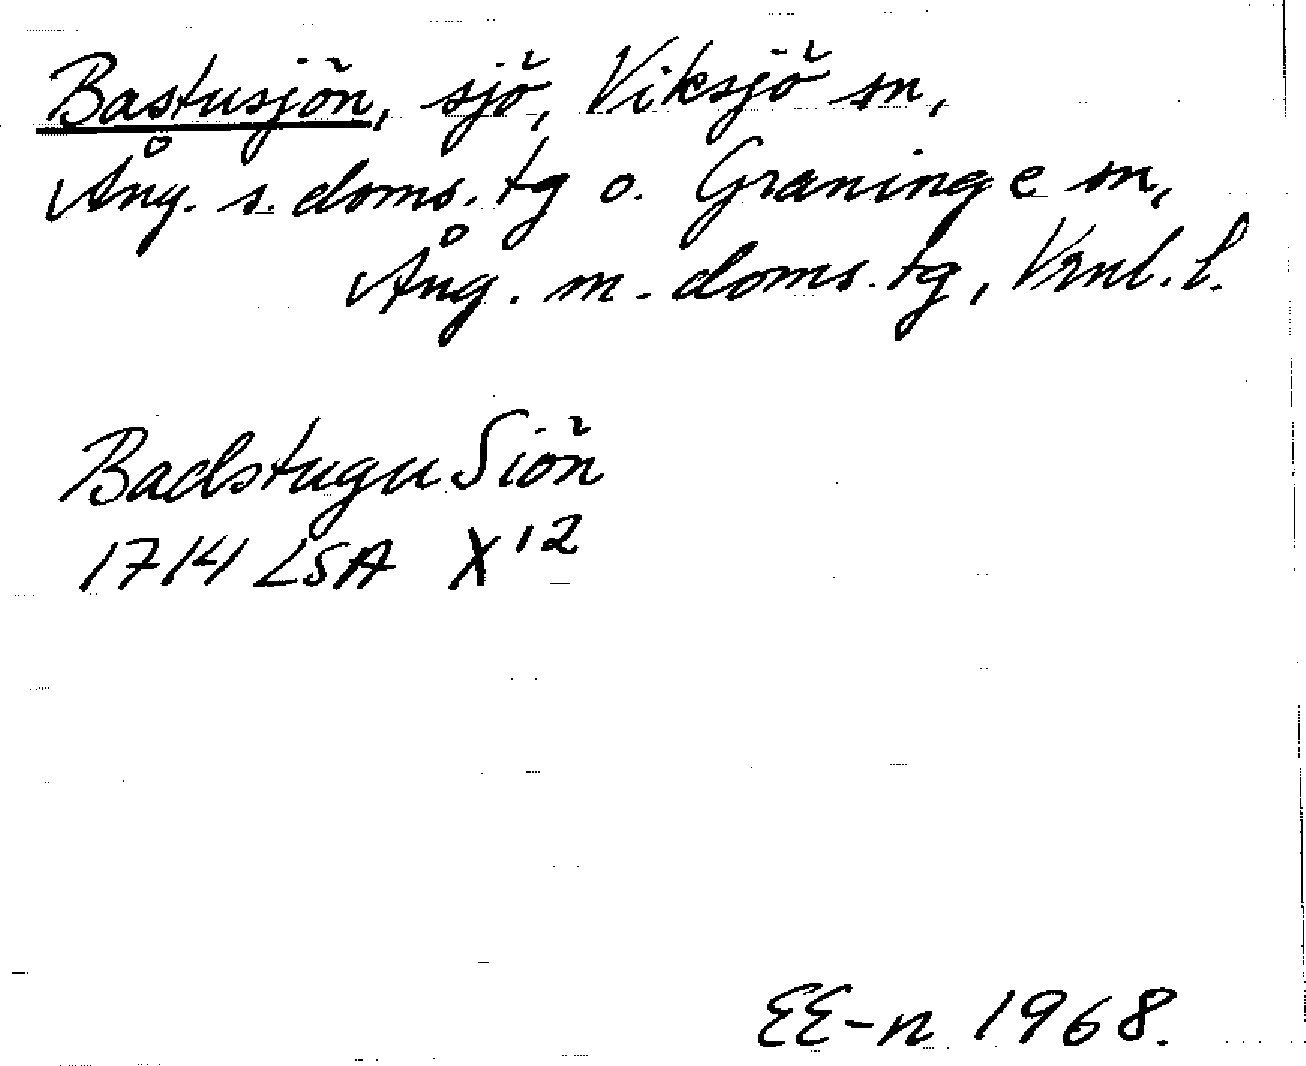 Bastusjön, sjö, Viksjö sn,
Ång. s. doms. tg o. Graninge sn,
Ång. m. doms. tg, Vrnl. l.
Badstugu Siön
1714 LSA X¹²
EE-n 1968.